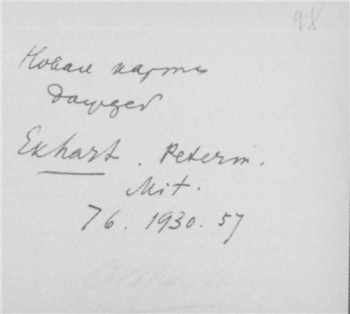 98
Новая карта
Ekhart. Peterm.
Mit.
76. 1930. 57